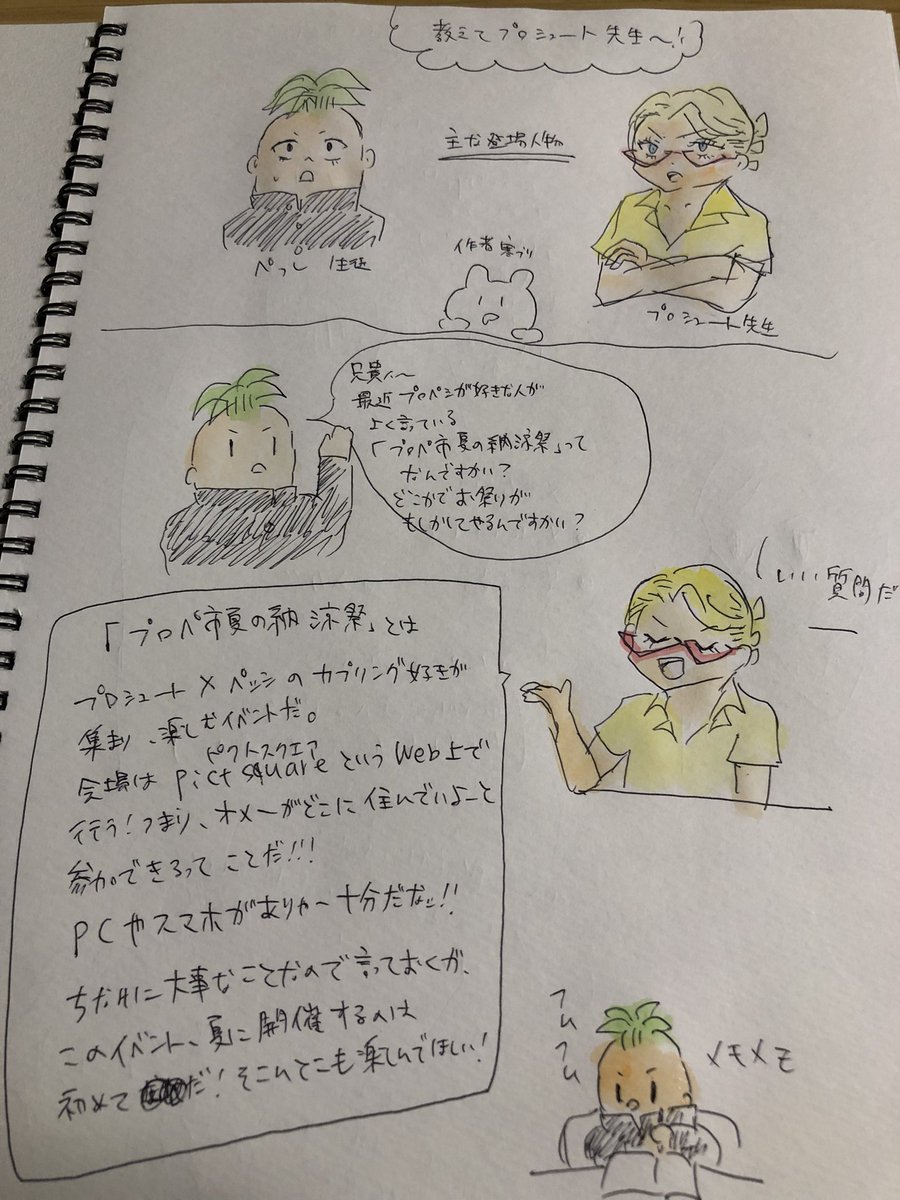 教えてプロシュート先生〜!!
主な登場人物
ぺっし 生徒
作者寒ブリ
プロシュート先生
兄貴ィ〜
最近プロペシが好きな人が
よく言っている
「プロペ市夏の納涼祭」って
なんですかい?
どこかでお祭りが
もしかしてやるんですかい?
いい質問だ
「プロペ市夏の納涼祭」とは
プロシュート×ペッシのカプリング好きが
集まり、楽しむイベントだ。
ピクトスクエア
会場はpict squareというWeb上で
行う!つまり、オメーがどこに住んでいよーと
参加できるってことだ!!!
PCやスマホがありゃー十分だなッ!!
ちなみに大事なことなので言っておくが、
このイベント、夏に開催するのは
初めてだ!そこんとこも楽しんでほしい!
フム
フム
メモメモ